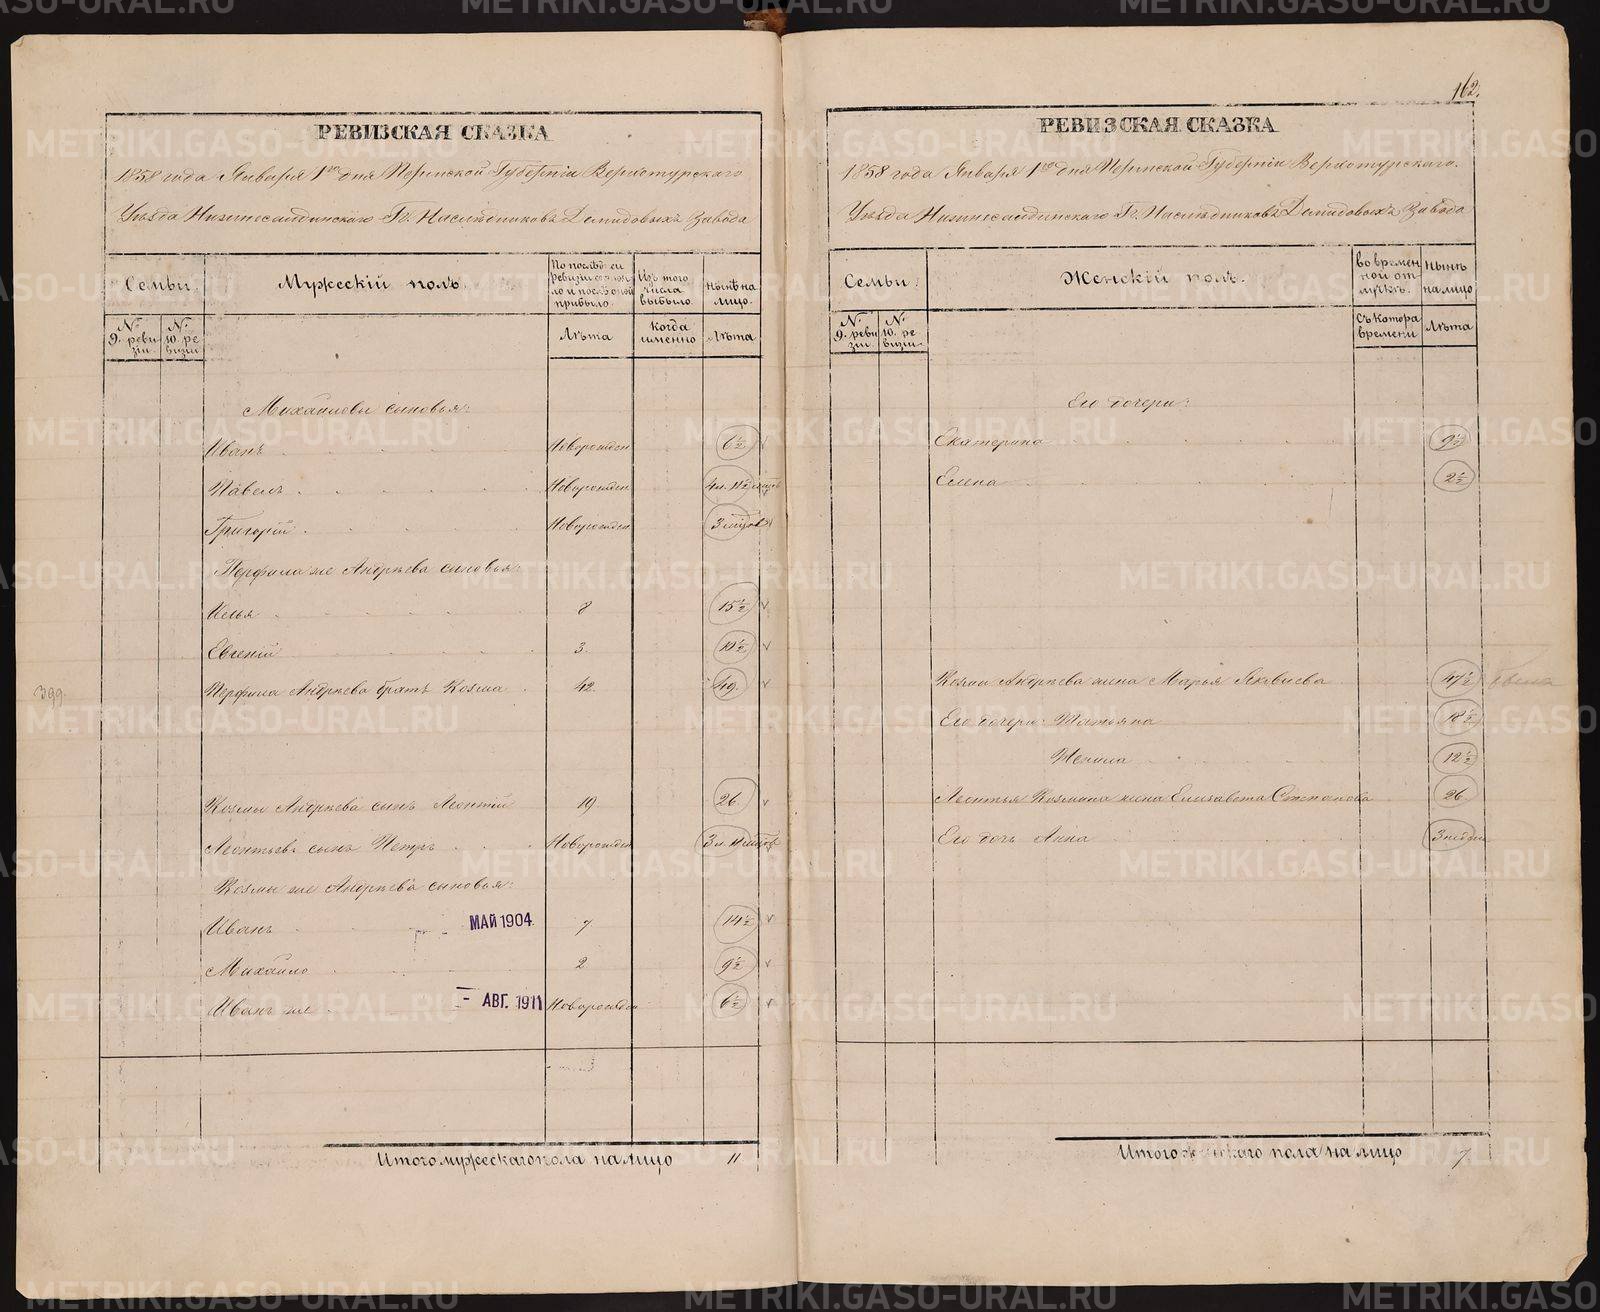 РЕВИЗСКАЯ СКАЗКА
1858 года Января 1го дня Пермской Губерніи Верхотурскаго
Уѣзда Нижнесалдинскаго Гг. Наслѣдниковъ Демидовыхъ Завода
Семьи. Мужескій полъ. По послѣдней ревизіи было и послѣ оной прибыло. Изъ того числа выбыло. Нынѣ на лицо.
№ 9. ревизіи № 10. ревизіи Лѣта когда именно Лѣта
Михайловы сыновья:
Иванъ Новорожден 6½
Павелъ Новорожден 4 л.
Григорій Новорожден 3 мѣсцов
Перфила же Андрѣева сыновья:
Илья 8 15½
Евгеній 3. 10½
399. Перфила Андрѣева братъ Козма 42 49.
Козмы Андрѣева сынъ Леонтій 19 26.
Леонтьевъ сынъ Петръ Новорожден 3 л.
Козмы же Андрѣева сыновья:
Иванъ МАЙ 1904 7 14½
Михайло 2 9½
Иванъ же - АВГ. 1911 Новорожден 6½
Итого мужескаго пола на лицо 11
162.
РЕВИЗСКАЯ СКАЗКА
1858 года Января 1го дня Пермской Губерніи Верхотурскаго
Уѣзда Нижнесалдинскаго Гг. Наслѣдниковъ Демидовыхъ Завода
Семьи. Женскій полъ. во временной отлучкѣ. нынѣ на лицо
№ 9. ревизіи № 10. ревизіи Съ котора времени Лѣта
Его дочери:
Екатерина 9½
Елена 2½
Козмы Андрѣева жена Марья 47½
Его дочери: Татьяна 18½
12½
Леонтья Козмина жена Елизавета Степанова 26
Его дочь Анна 3 недѣли
Итого женскаго пола на лицо 7.
METRIKI.GASO-URAL.RU